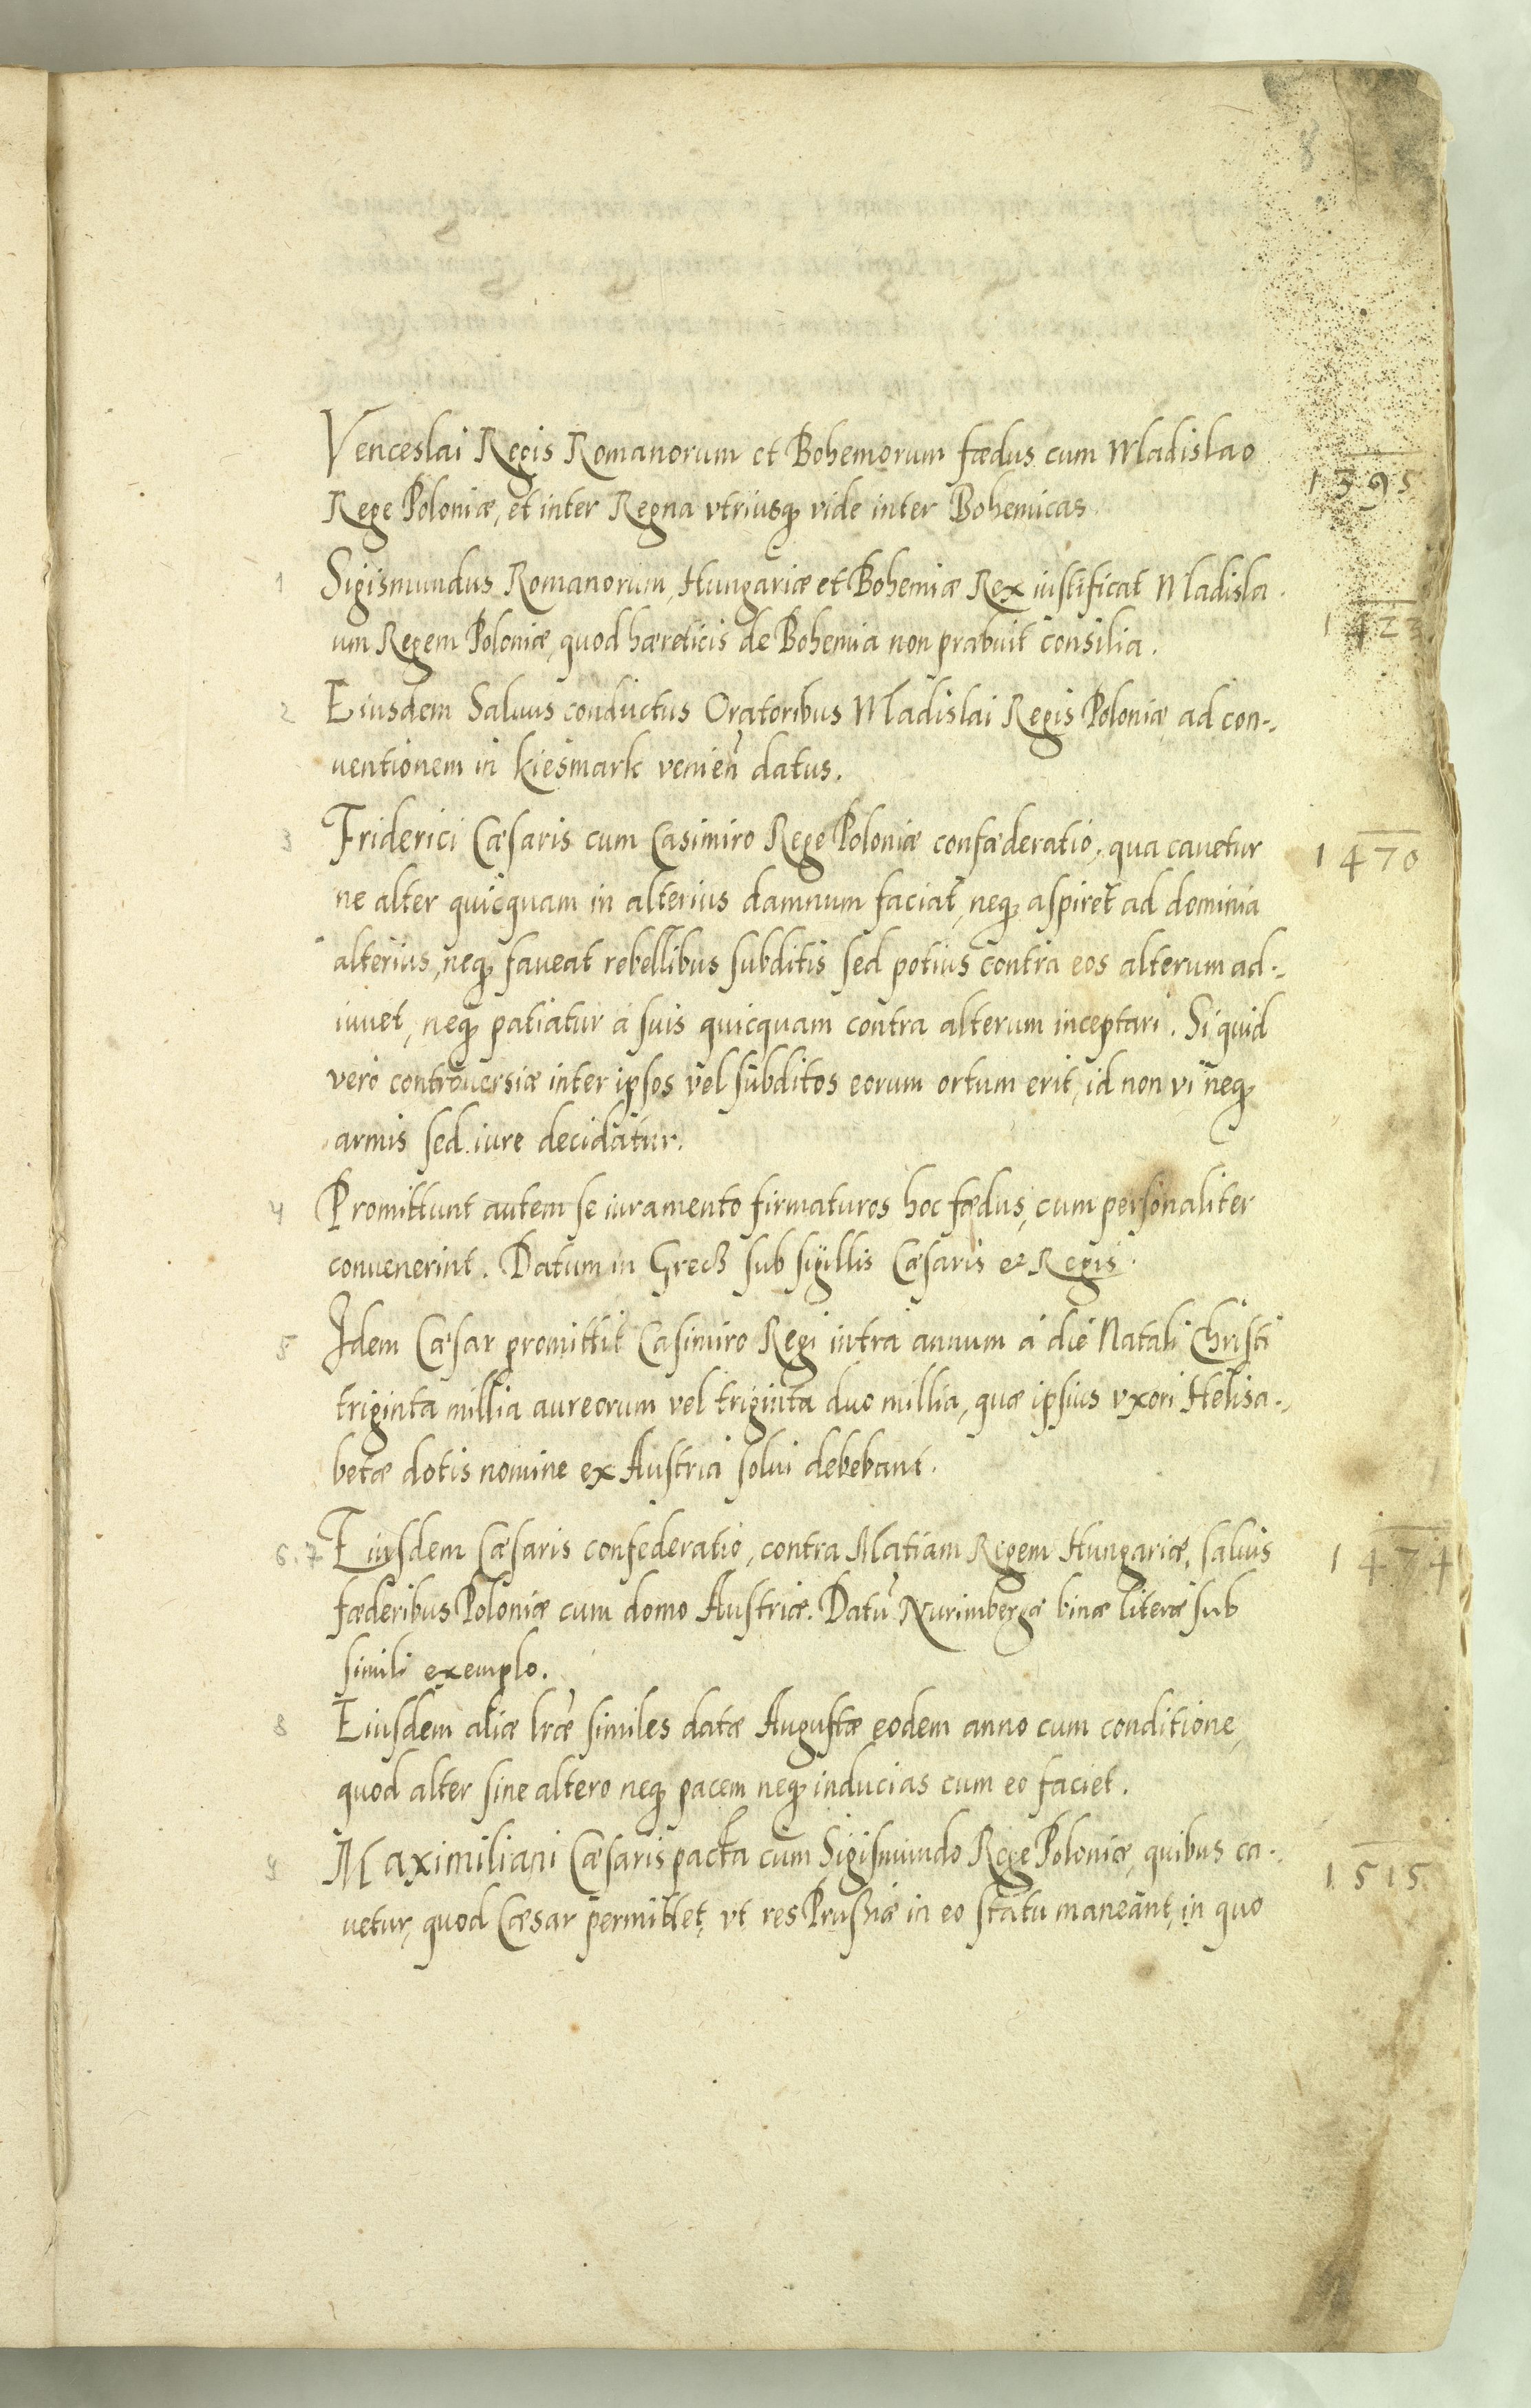 8
Venceslai Regis Romanorum et Bohemorum fœdus cum Wladislao
1395
Rege Poloniæ, et inter Regna vtriusq₃ vide inter Bohemicas.
1 Sigismundus Romanorum, Hungariæ et Bohemiæ Rex iustificat Wladisla-
1423
um Regem Poloniæ, quod hæreticis de Bohemia non præbuit consilia.
2 Eiusdem Saluus conductus Oratoribus Wladislai Regis Poloniæ ad con-
uentionem in Kiesmark venieñ datus.
3 Friderici Cæsaris cum Casimiro Rege Poloniæ confæderatio, qua cauetur
1470
ne alter quicquam in alterius damnum faciat, neq₃ aspiret ad dominia
alterius, neq₃ faueat rebellibus subditis sed potius contra eos alterum ad-
iuuet, neq₃ patiatur à suis quicquam contra alterum inceptari. Si quid
vero controuersiæ inter ipsos vel subditos eorum ortum erit, id non vi neq₃
armis sed iure decidatur.
4 Promittunt autem se iuramento firmaturos hoc fœdus, cum personaliter
conuenerint. Datum in Grecz sub sigillis Cæsaris et Regis.
5 Idem Cæsar promittit Casimiro Regi intra annum à die Natali Christi
triginta millia aureorum vel triginta duo millia, quæ ipsius vxori Helisa-
betæ dotis nomine ex Austria solui debebant.
6. 7 Eiusdem Cæsaris confederatio, contra Matiam Regem Hungariæ, saluis
1474
fæderibus Poloniæ cum domo Austriæ. Datũ Nurimbergæ binæ literæ sub
simili exemplo.
8 Eiusdem aliæ lræ similes datæ Augustæ eodem anno cum conditione,
quod alter sine altero neq₃ pacem neq₃ inducias cum eo faciet.
9 Maximiliani Cæsaris pacta cum Sigismundo Rege Poloniæ, quibus ca-
1515
uetur, quod Cæsar permittet, vt res Prußiæ in eo statu maneant, in quo